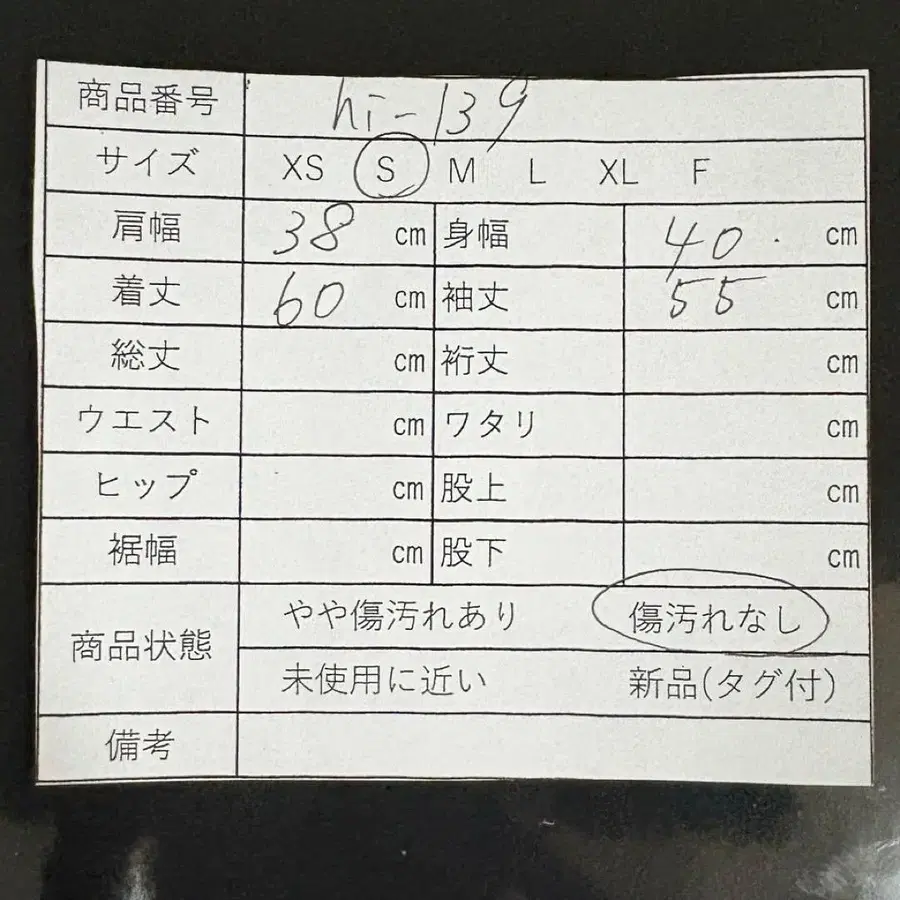 商品番号 hi-139
サイズ XS S M L XL F
肩幅 38 cm 身幅 40 cm
着丈 60 cm 袖丈 55 cm
総丈 cm 裄丈 cm
ウエスト cm ワタリ cm
ヒップ cm 股上 cm
裾幅 cm 股下 cm
商品状態 やや傷汚れあり 傷汚れなし
未使用に近い 新品(タグ付)
備考